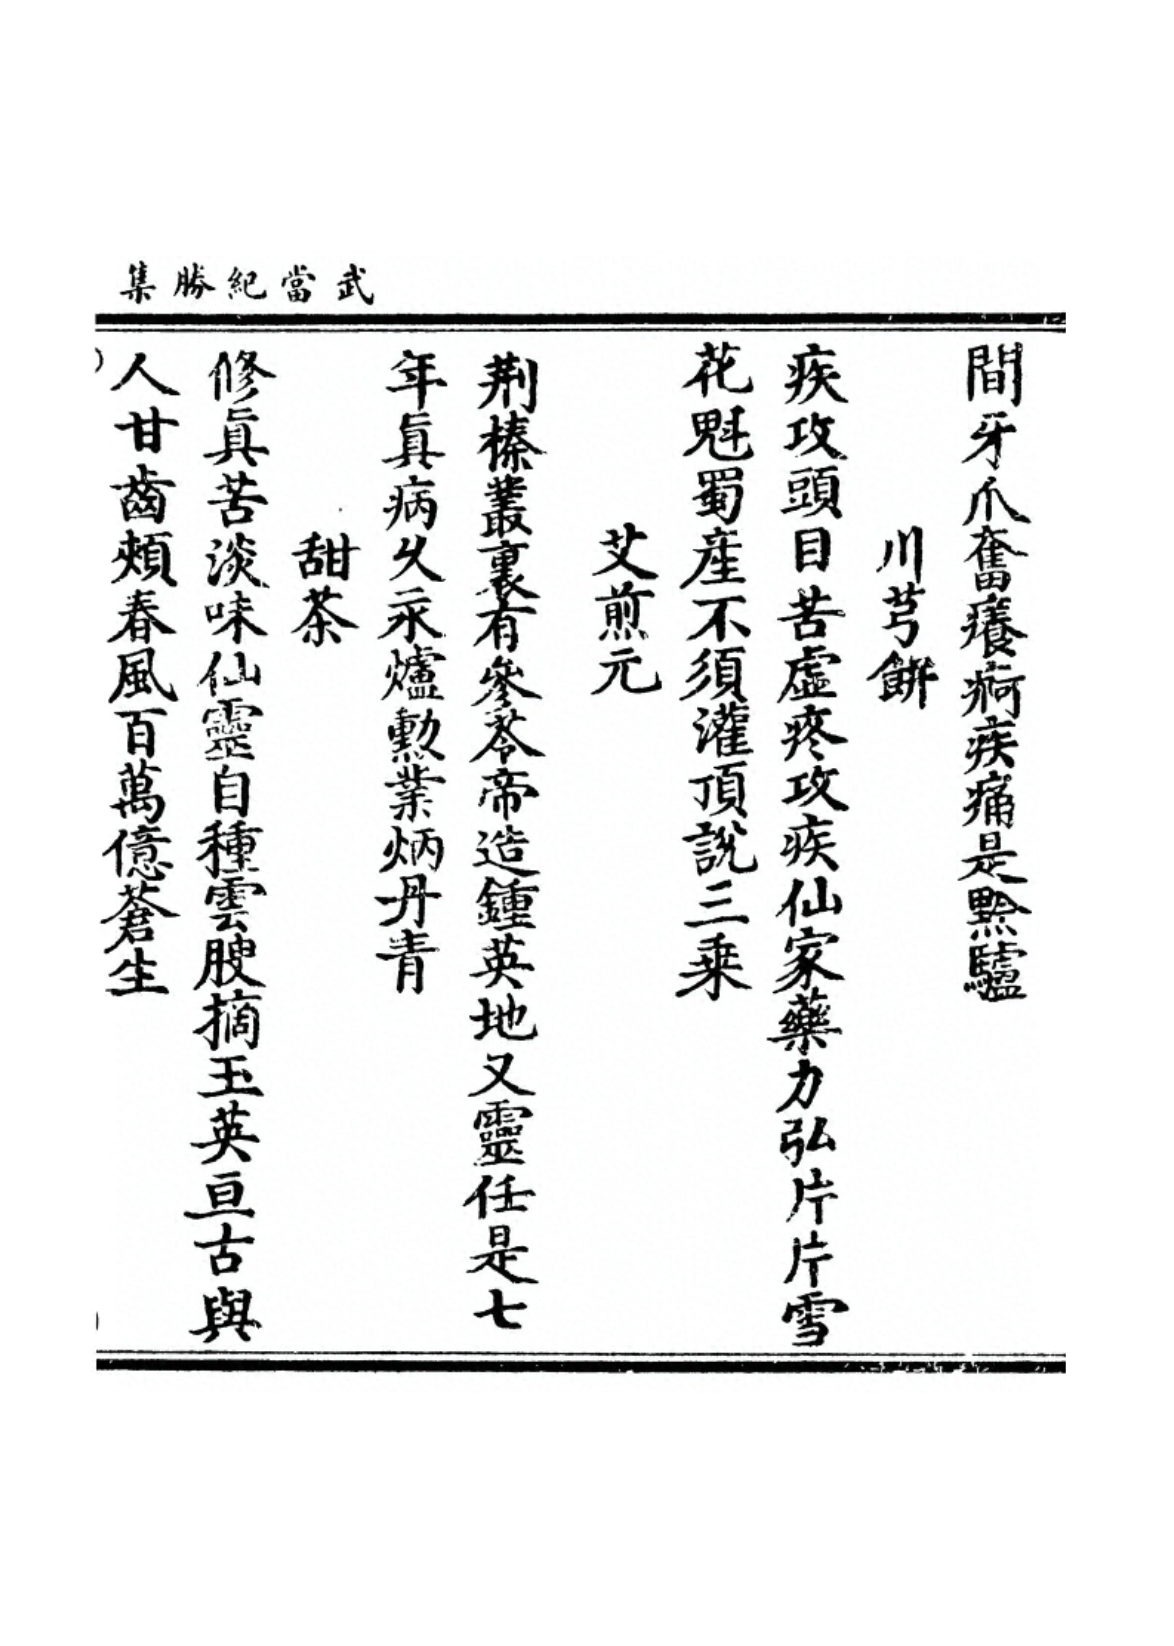 武當紀勝集
間牙爪奮癢痾疾痛是黔驢
川芎餅
疾攻頭目苦虛疼攻疾仙家藥力弘片片雪
花魁蜀產不須灌頂說三乘
艾煎元
荆榛叢裏有參苓帝造鍾英地又靈任是七
年眞病久永爐勳業炳丹青
甜茶
修眞苦淡味仙靈自種雲腴摘玉英亘古與
人甘齒頰春風百萬億蒼生